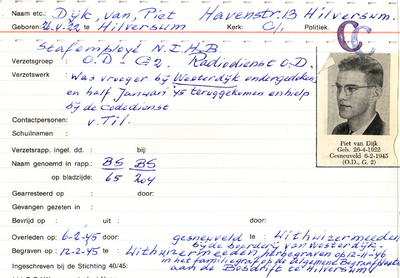 Naam etc. Dijk, van, Piet Havenstr. 13 Hilversum.
Geboren: 26-4-22 te Hilversum Kerk: C/1 Politiek.
Stafemployé N.I.H.B CC
Verzetsgroep O.D - G2. Radiodienst O.D.
Verzetswerk : Was vroeger bij Westerdijk ondergedoken
en half Januari '45 teruggekomen en hielp
bij de Codedienst
Contactpersonen: v. Til.
Schuilnaam :
Piet van Dijk
Geb. 26-4-1922
Gesneuveld 6-2-1945
(O.D., G. 2)
Verzetsrapp. ingel. dd. : bij:
Naam genoemd in rapp.: BS BS
op bladzijde: 65 204
Gearresteerd op : door:
Gevangen gezeten in :
Bevrijd op : uit : door:
Overleden op: 6-2-'45 door: gesneuveld te : Uithuizermeeden
bij de boerderij van Westerdijk.
Begraven op : 12-2-'45 te Uithuizermeeden, herbegraven op 12-11-46
in het familiegraf op de Algemene Begraafplaats
Ingeschreven bij de Stichting 40/45: aan de Bosdrift te Hilversum